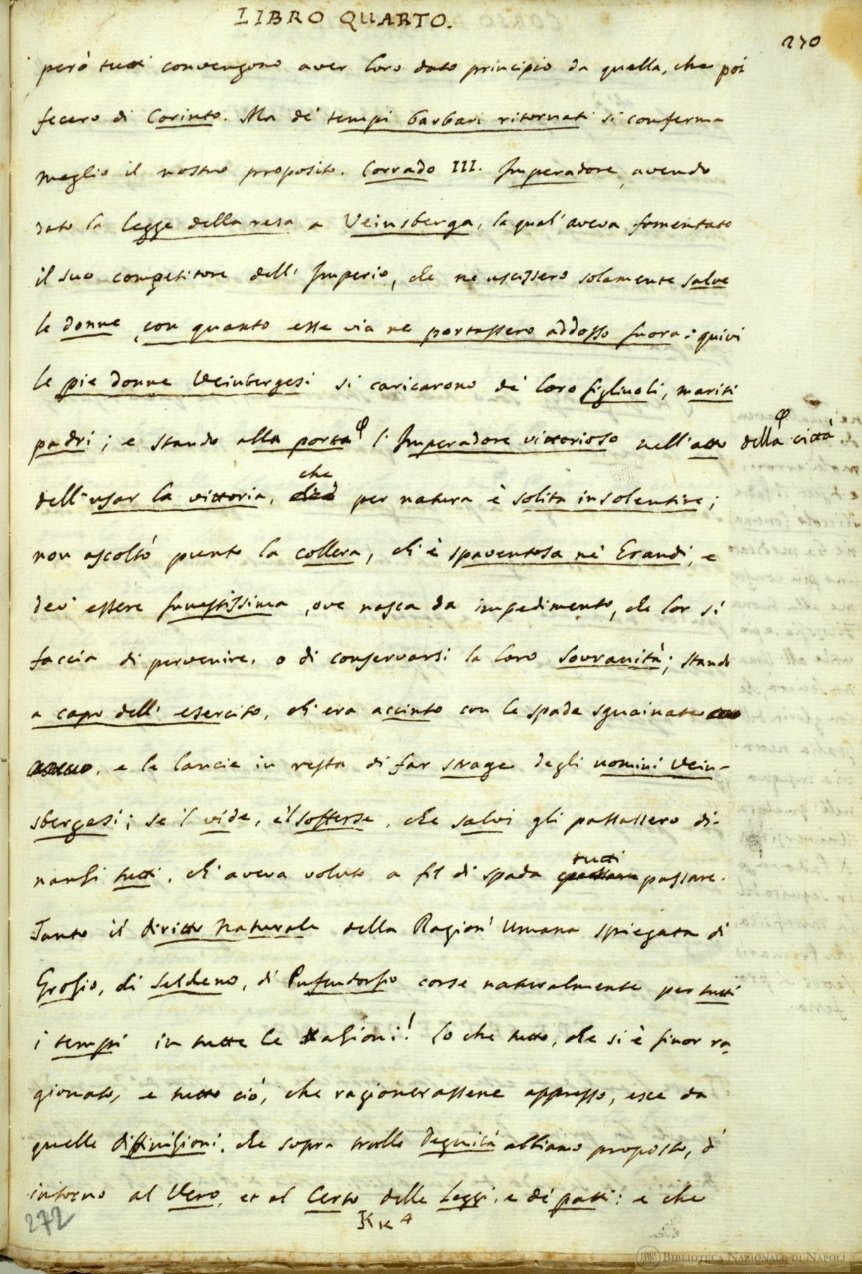 LIBRO QUARTO.
270
però tutti convengono aver loro dato principio da quella, che poi
fecero di Corinto. Ma de' tempi barbari ritornati si conferma
meglio il nostro proposito. Corrado III. Imperadore, avendo
dato la legge della resa a Veinsberga, la qual' aveva fomentato
il suo competitore dell' Imperio, che ne uscissero solamente salve
le donne, con quanto esse via ne portassero addosso fuora: quivi
le pie donne Veinbergesi si caricarono de' loro figliuoli, mariti
padri; e stando alla porta φ l'Imperadore vittorioso nell' atto della φ città
dell' usar la vittoria, che per natura è solita insolentire;
non ascoltò punto la collera, ch' è spaventosa ne' Grandi, e
dev' essere funestissima, ove nasca da impedimento, che lor si
faccia di pervenire, o di conservarsi la loro Sovranità; stando
a capo dell' esercito, ch' era accinto con le spade sguainate
, e le lancie in resta di far strage degli uomini Vein-
sbergesi; se 'l vide, e 'l sofferse, che salvi gli passassero di-
nanzi tutti, ch' aveva voluto a fil di spada tutti passare.
Tanto il diritto Naturale della Ragion' Umana spiegata di
Grozio, di Seldeno, di Pufendorfio corse naturalmente per tutti
i tempi in tutte le Nazioni! Lo che tutto, che si è finor ra-
gionato, e tutto ciò, che ragionerassene appresso, esce da
quelle diffinizioni, che sopra tralle Degnità abbiamo proposto, d'
intorno al Vero, et al Certo delle Leggi, e de' patti: e che
272
Kk 4
BIBLIOTECA NAZIONALE DI NAPOLI